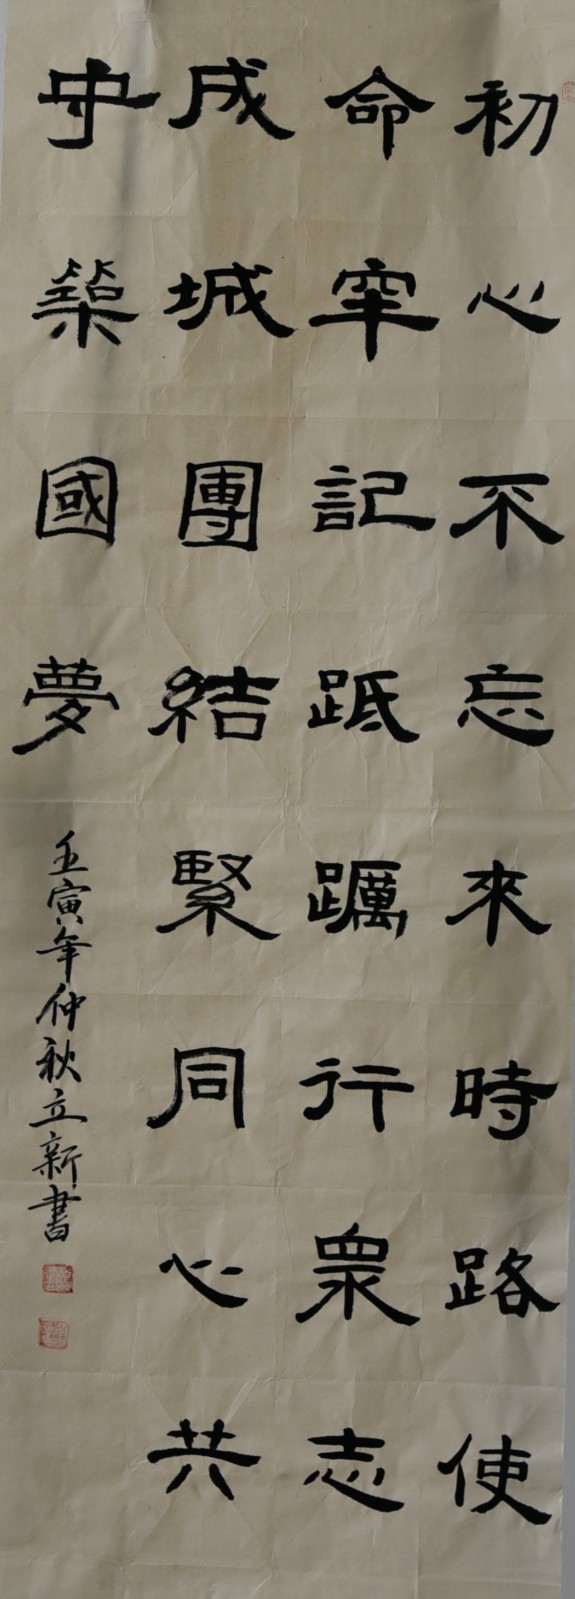 初心不忘來時路使
命牢記砥礪行眾志
成城團結緊同心共
守築國夢
壬寅年仲秋立新書